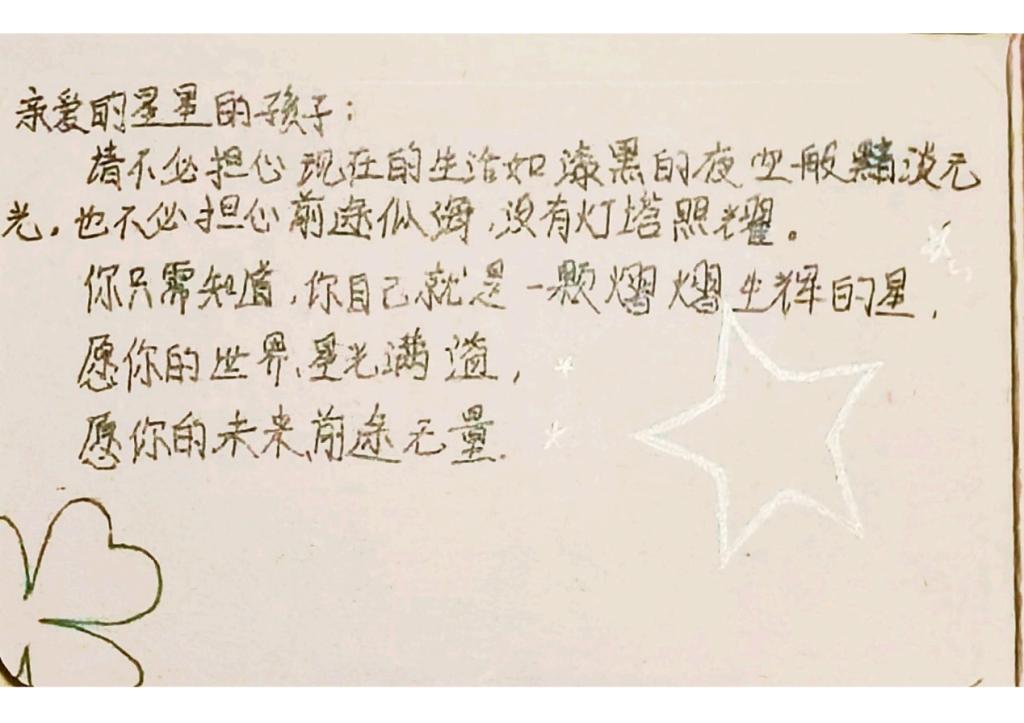 亲爱的星星的孩子：
请不必担心现在的生活如漆黑的夜空般黯淡无
光。也不必担心前途似海，没有灯塔照耀。
你只需知道，你自己就是一颗熠熠生辉的星，
愿你的世界、星光满溢，
愿你的未来、前途无量.